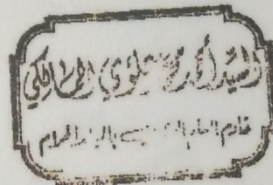 السيد أحمد محمد علوي المالكي
خادم العلم الشريف بالبلد الحرام